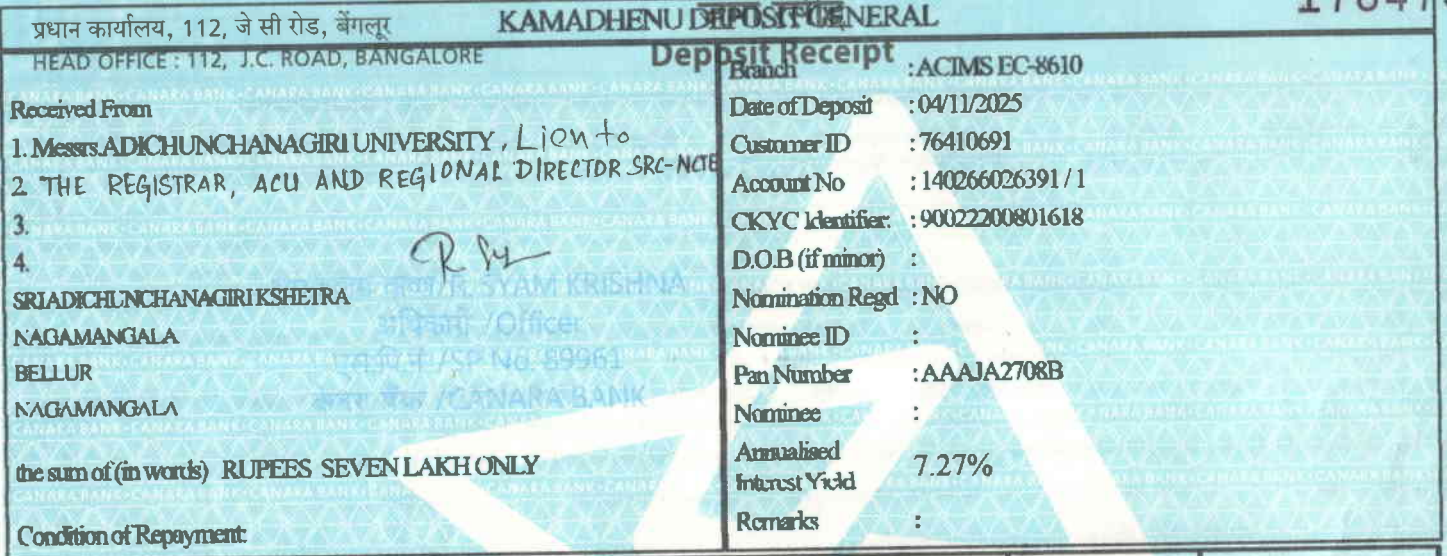 प्रधान कार्यालय, 112, जे सी रोड, बेंगलूर
KAMADHENU DEPOSIT GENERAL
HEAD OFFICE : 112, J.C. ROAD, BANGALORE
Deposit Receipt
Received From
1. Messrs.ADICHUNCHANAGIRI UNIVERSITY, Lien to
2 THE REGISTRAR, ACU AND REGIONAL DIRECTOR SRC-NCTE
3.
4.
SRI ADICHUNCHANAGIRI KSHETRA
NAGAMANGALA
BELLUR
NAGAMANGALA
R. SYAM KRISHNA
अधिकारी /Officer
/SP No. 89961
केनरा बैंक /CANARA BANK
the sum of (in words) RUPEES SEVEN LAKH ONLY
Condition of Repayment:
Branch : ACIMS EC-8610
Date of Deposit : 04/11/2025
Customer ID : 76410691
Account No : 140266026391 / 1
CKYC Identifier: : 90022200801618
D.O.B (if minor) :
Nomination Regd : NO
Nominee ID :
Pan Number : AAAJA2708B
Nominee :
Annualised Interest Yield 7.27%
Remarks :